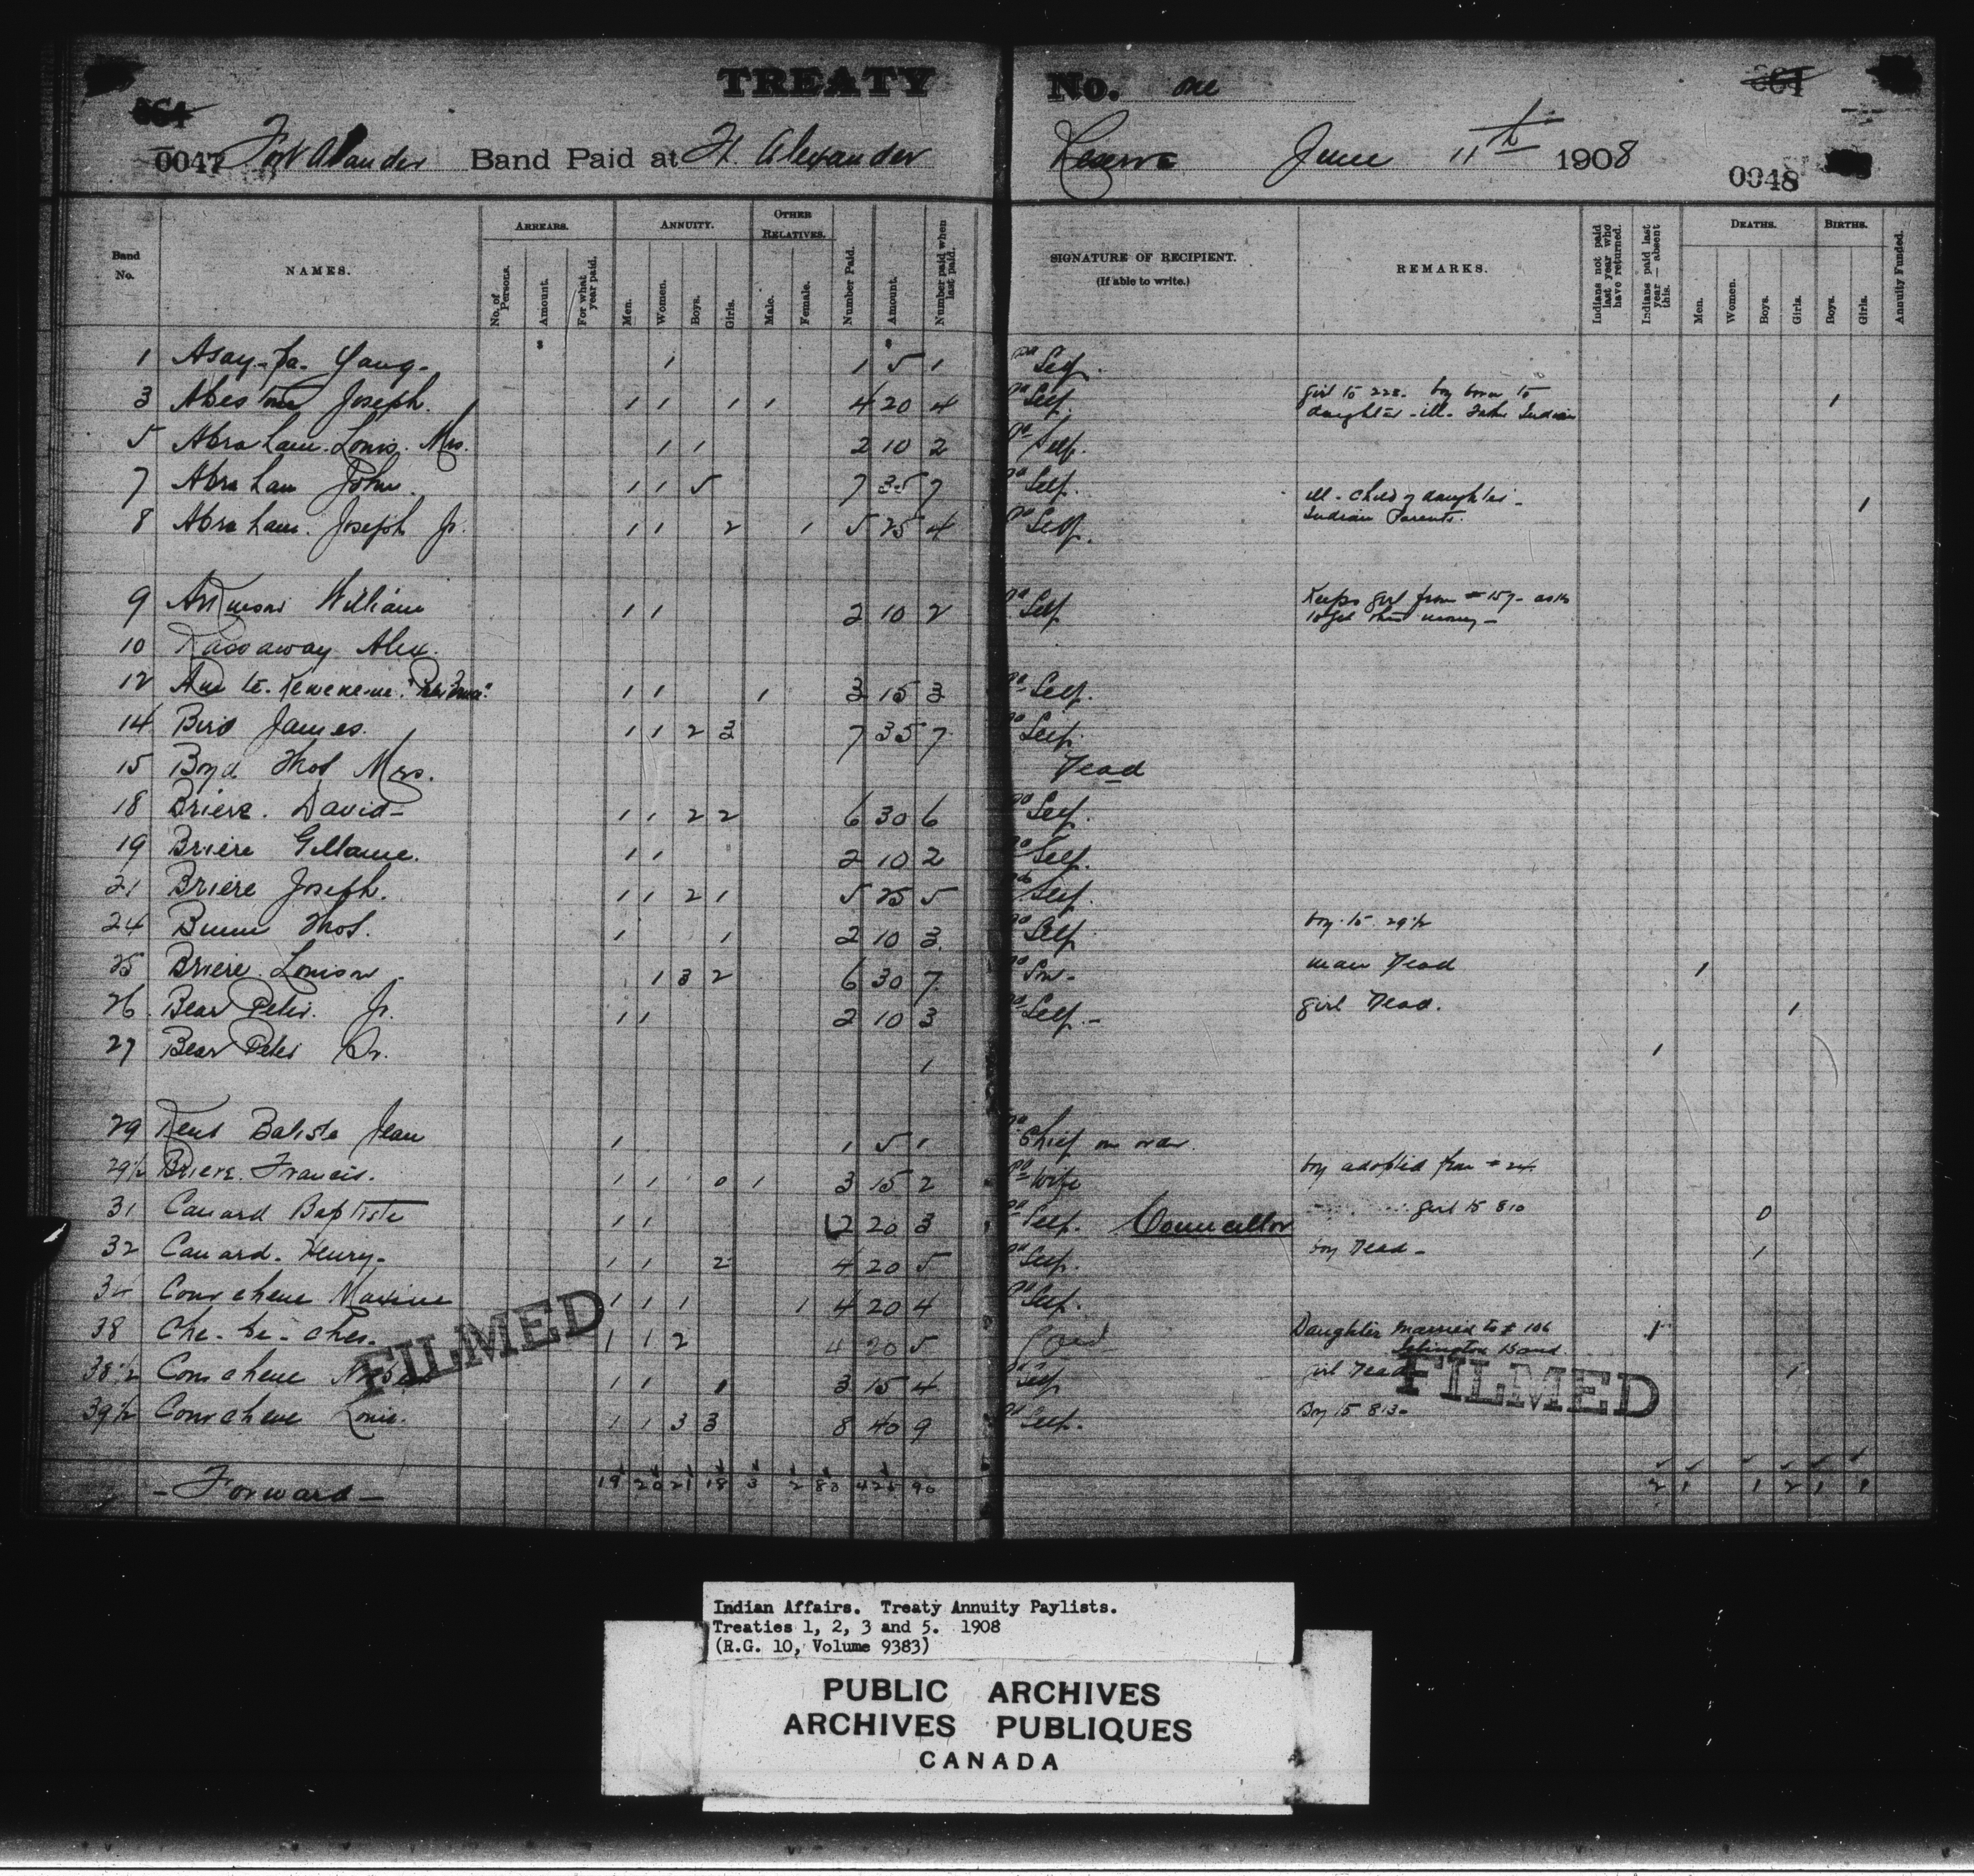 TREATY No. one
0047 Fort Alexander Band Paid at Ft. Alexander Reserve June 11th 1908 0048
Band No. NAMES. ARREARS. No. of Persons. Amount. For what year paid. ANNUITY. Men. Women. Boys. Girls. OTHER RELATIVES. Male. Female. Number Paid. Amount. Number paid when last paid. SIGNATURE OF RECIPIENT. (If able to write.) REMARKS. Indians not paid last year who have returned. Indians paid last year — absent this. DEATHS. Men. Women. Boys. Girls. BIRTHS. Boys. Girls. Annuity Funded.
1 Asay-ta- Yang- 1 1 5 1 Pd Self.
3 Joseph. 1 1 1 1 4 20 4 Pd Self. girl to 228. boy born to 1
daughter - ill. Indian
5 Abraham. Louis. Mrs. 1 1 2 10 2 Pd Self.
7 Abraham John. 1 1 5 7 35 7 Pd Self.
ill. child of daughter - 1
8 Abraham. Joseph Jr. 1 1 2 1 5 25 4 Pd Self. Indian Parents.
9 William 1 1 2 10 2 Pd Self Keeps girl from # 157- asks
to get money -
10 Alex.
12 1 1 1 3 15 3 Pd Self.
14 Bird James. 1 1 2 3 7 35 7 Pd Self.
15 Boyd Thos Mrs. Dead
18 Briere. David- 1 1 2 2 6 30 6 Pd Self.
19 Briere 1 1 2 10 2 Pd Self.
21 Briere Joseph. 1 1 2 1 5 25 5 Pd Self.
24 Thos. 1 1 2 10 3 Pd Self boy to 29½
25 Briere. Louison. 1 3 2 6 30 7 Pd Son- man Dead 1
26 Bear Peter. Jr. 1 1 2 10 3 Pd Self.- girl Dead. 1
27 Bear Peter Sr. 1 1
29 Kent Batiste Jean 1 1 5 1 Pd Chief
29½ Briere. Francis. 1 1 0 1 3 15 2 Pd Wife boy adopted from # 24
31 Canard Baptiste 1 1 2 20 3 Pd Self. Councillor girl to 810 0
32 Canard. Henry- 1 1 2 4 20 5 Pd Self. boy Dead- 1
Courchene Maxime 1 1 1 1 4 20 4 Pd Self.
38 Che-be-ches. 1 1 2 4 20 5 Paid Daughter married to # 106 1
Band
38½ Courchene 1 1 1 3 15 4 Pd Self girl Dead 1
39½ Courchene Louis. 1 1 3 3 8 40 9 Pd Self. Boy to 813-
FILMED
FILMED
- Forward - 19 20 21 18 3 2 83 425 90 2 1 1 2 1 1
Indian Affairs. Treaty Annuity Paylists.
Treaties 1, 2, 3 and 5. 1908
(R.G. 10, Volume 9383)
PUBLIC ARCHIVES
ARCHIVES PUBLIQUES
CANADA